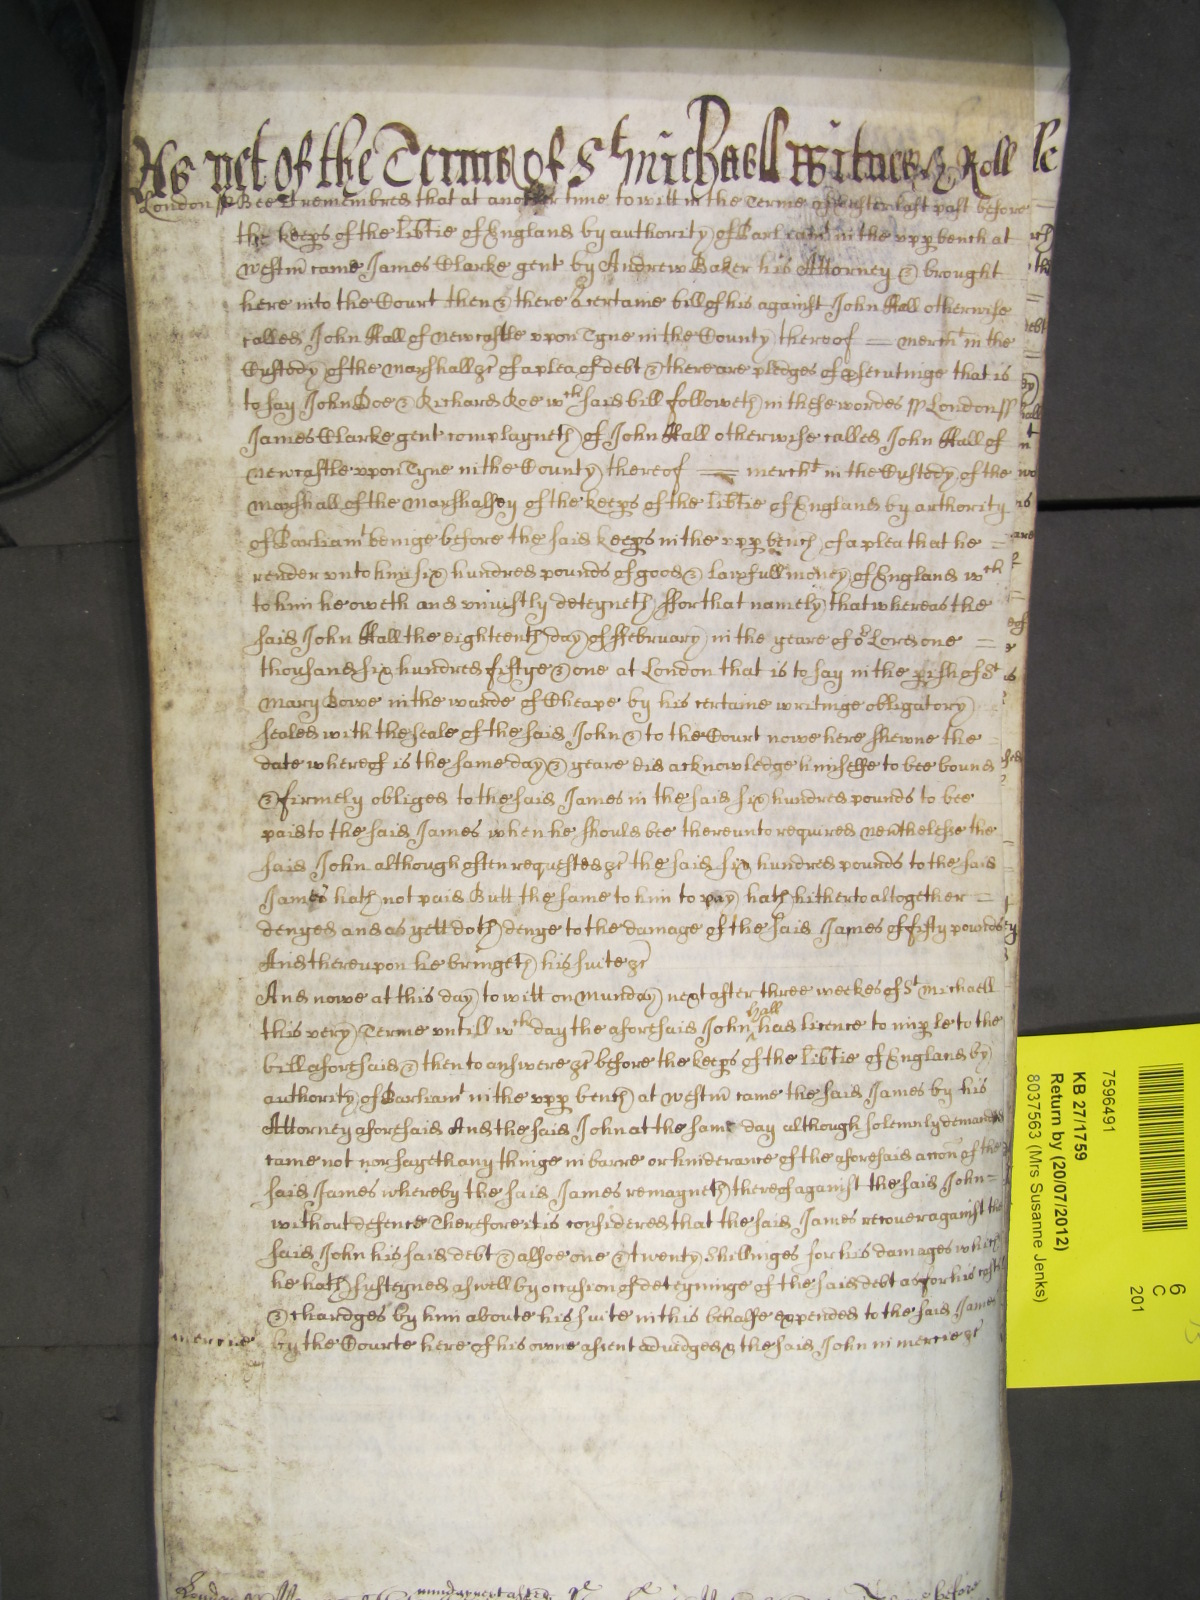 As yet of the Terme of St Michaell Witnes Roll
London ss Bee it remembred that at another time to witt in the Terme of Easter last past before
the keeps of the libtie of England by authority of Parliamt in the upp bench at
Westm̄ came James Clarke gent by Andrew Baker his Attorney & brought
here into the Court then & there a certaine bill of his against John Hall otherwise
called John Hall of Newcastle upon Tyne in the County thereof = mercht in the
Custody of the Marshall &c of a plea of debt & there are pledges of psecutinge that is
to say John Doe & Richard Roe wch said bill followeth in these wordes ss London ss
James Clarke gent complayneth of John Hall otherwise called John Hall of
Newcastle upon Tyne in the County thereof = mercht in the Custody of the
Marshall of the Marshalsey of the keeps of the libtie of England by authority
of Parliamt beinge before the said keeps in the upp bench of a plea that he =
render unto him six hundred pounds of good & lawfull money of England wch
to him he oweth and uniustly deteyneth ffor that namely that whereas the
said John Hall the eighteenth day of ffebruary in the yeare of or Lord one =
thousand six hundred fiftye & one at London that is to say in the pish of St
Mary Bowe in the warde of Cheape by his certaine writinge obligatory
sealed with the seale of the said John & to the Court nowe here shewne the =
date whereof is the same day & yeare did acknowledge himselfe to bee bound
& firmely obliged to the said James in the said six hundred pounds to bee
paid to the said James when he should bee thereunto required nevthelesse the
said John although often requested &c the said six hundred pounds to the said
James hath not paid Butt the same to him to pay hath hitherto altogether =
denyed and as yett doth denye to the damage of the said James of fifty pounds
And thereupon he bringeth his suite &c
And nowe at this day to witt on Munday next after three weekes of St Michaell
this very Terme untill wch day the aforesaid John Hall had licence to imple to the
bill aforesaid & then to answere &c before the keeps of the libtie of England by
authority of Parliamt in the upp bench at Westm̄ came the said James by his
Attorney aforesaid And the said John at the same day although solemnly demanded
came not nor sayeth any thinge in barre or hinderance of the aforesaid accon̄ of the
said James whereby the said James remayneth thereof against the said John =
without defence Therefore it is considered that the said James recover against the
said John his said debt & alsoe one & twenty shillinges for his damages which
he hath susteyned aswell by occasion of deteyninge of the said debt as for his costs
& chardges by him aboute his suite in this behalfe expended to the said James
mercie by the Courte here of his owne assent adiudged & the said John in mercie &c
London
before
7596491
KB 27/1759
Return by (20/07/2012)
8037563 (Mrs Susanne Jenks)
6
C
201